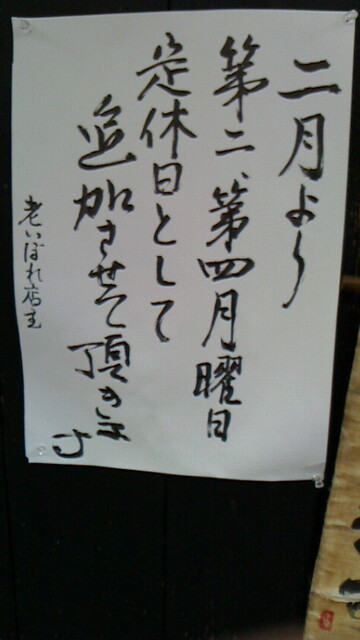 二月より
第二、第四月曜日
定休日として
追加させて頂きます
老いぼれ店主